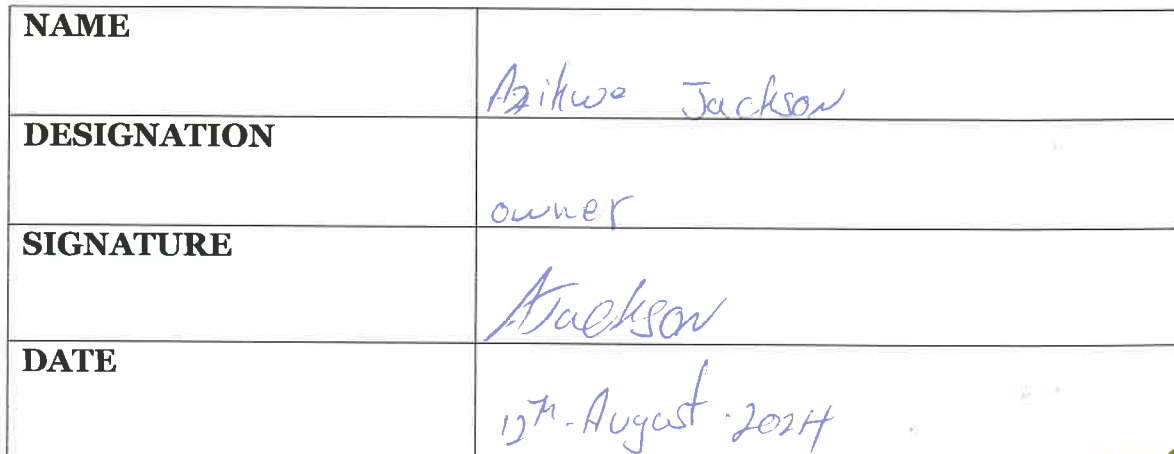 NAME
Azikwe Jackson
DESIGNATION
owner
SIGNATURE
AJackson
DATE
12th-August-2024